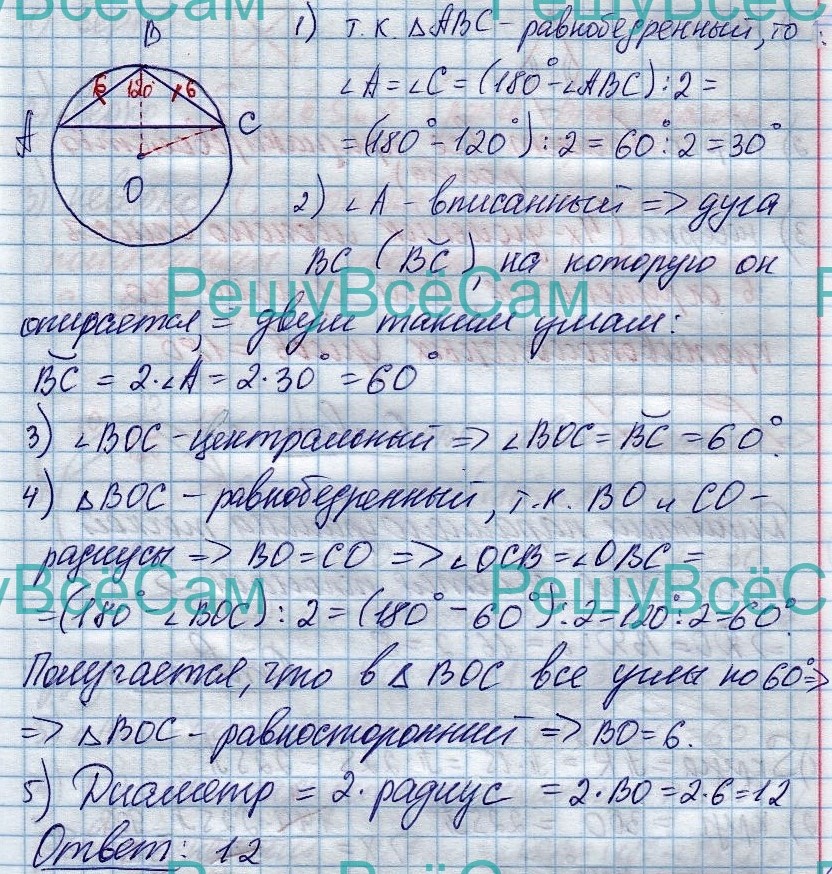 РешуВсёСам РешуВсёС
B
6 120° 6
A C
O
1) т.к. △ABC - равнобедренный, то
∠A = ∠C = (180° - ∠ABC) : 2 =
= (180° - 120°) : 2 = 60° : 2 = 30°
2) ∠A - вписанный => дуга
BC (B͝C), на которую он
РешуВсёСам
опирается, = двум таким углам:
B͝C = 2·∠A = 2·30° = 60°
3) ∠BOC - центральный => ∠BOC = B͝C = 60°.
4) △BOC - равнобедренный, т.к. BO и CO -
радиусы => BO = CO => ∠OCB = ∠OBC =
уВсёСам РешуВсёС
= (180° ∠BOC) : 2 = (180° - 60°) : 2 = 120° : 2 = 60°.
Получается, что в △ BOC все углы по 60° =>
=> △BOC - равносторонний => BO = 6.
5) Диаметр = 2·радиус = 2·BO = 2·6 = 12
Ответ: 12
РешуВсёСам